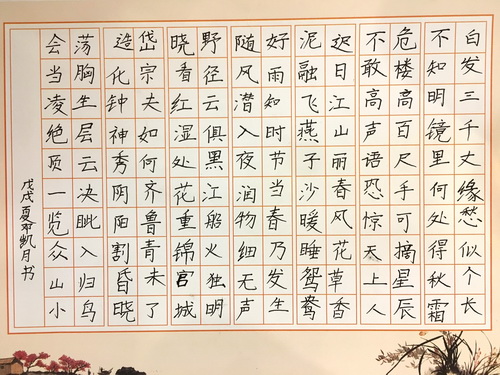 白发三千丈缘愁似个长
不知明镜里何处得秋霜
危楼高百尺手可摘星辰
不敢高声语恐惊天上人
迟日江山丽春风花草香
泥融飞燕子沙暖睡鸳鸯
好雨知时节当春乃发生
随风潜入夜润物细无声
野径云俱黑江船火独明
晓看红湿处花重锦官城
岱宗夫如何齐鲁青未了
造化钟神秀阴阳割昏晓
荡胸生层云决眦入归鸟
会当凌绝顶一览众山小
戊戌夏邓凯月书